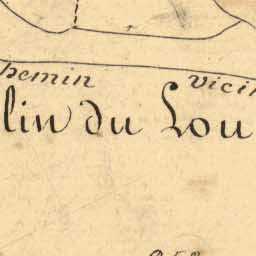 hemin vici
lin du Lou